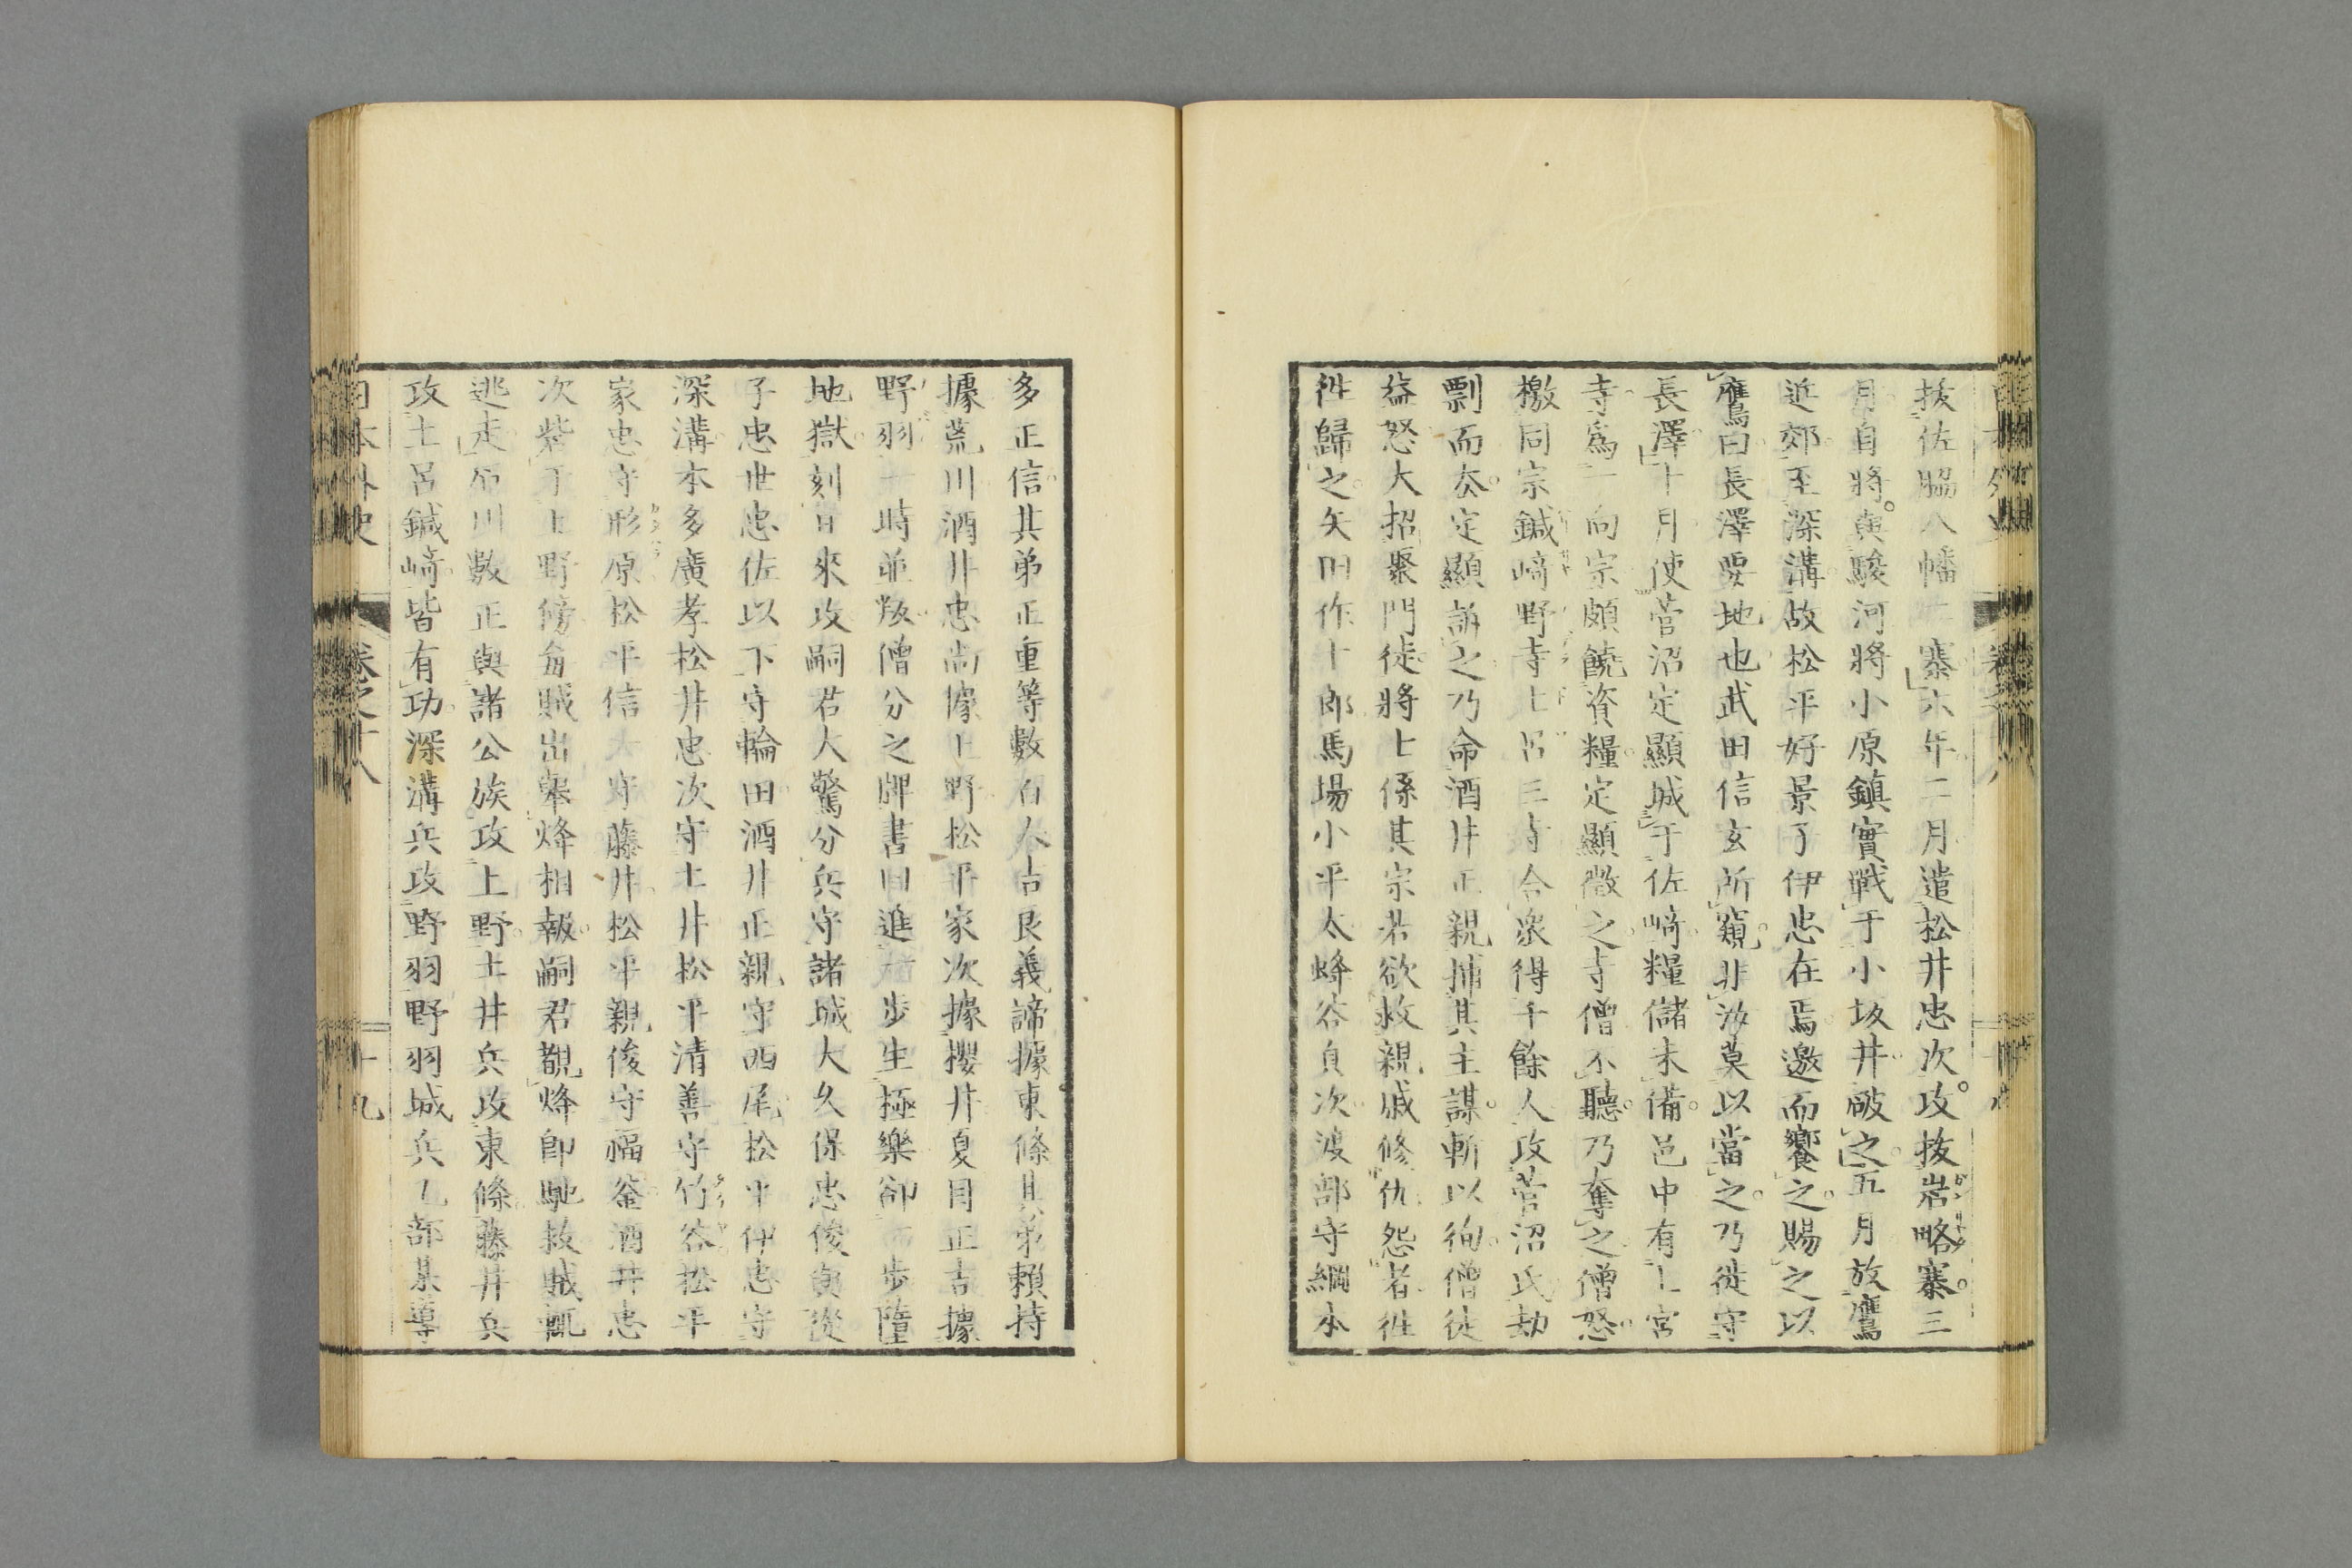 拔佐脇八幡二寨六年二月遣松井忠次攻拔岩略寨三
月自將與駿河將小原鎮實戰于小坂井破之五月放鷹
近郊至深溝故松平好景子伊忠在焉邀而饗之賜之以
鷹曰長澤要地也武田信玄所窺非汝莫以當之乃徙守
長澤十月使菅沼定顯城于佐﨑糧儲未備邑中有上宮
寺爲一向宗頗饒資糧定顯徵之寺僧不聽乃奪之僧怒
檄同宗鍼﨑野寺土呂三寺合衆得千餘人攻菅沼氏劫
剽而去定顯訴之乃命酒井正親捕其主謀斬以徇僧徒
益怒大招聚門徒將士係其宗若欲救親戚修仇怨者徃
徃歸之矢田作十郎馬場小平太蜂谷貞次渡部守綱本
多正信其弟正重等數百人吉良義諦據東條其弟賴持
據荒川酒井忠尚據上野松平家次據櫻井夏目正吉據
野羽一時並叛僧分之牌書曰進一步生極樂卻一步墮
地獄刻日來攻嗣君大驚分兵守諸城大久保忠俊與從
子忠世忠佐以下守輪田酒井正親守西尾松平伊忠守
深溝本多廣孝松井忠次守土井松平清善守竹谷松平
家忠守形原松平信一守藤井松平親俊守福釜酒井忠
次柴于上野傍每賊出擧烽相報嗣君覩烽卽馳救賊輒
逃走石川數正與諸公族攻上野土井兵攻東條藤井兵
攻土呂鍼﨑皆有功深溝兵攻野羽野羽城兵乙部某導
日本外史 卷之十八 十九